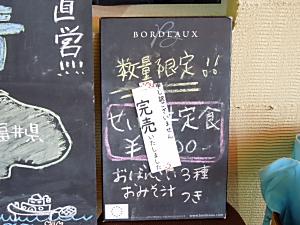 直営
福井県
BORDEAUX
数量限定!!
申し訳ございません
完売
いたしました
定食
¥
00-
おばんざい3種
おみそ汁
つき
www.bordeaux.com